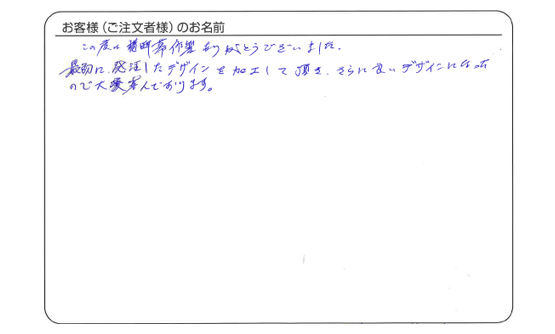 お客様(ご注文者様)のお名前
この度は 横断幕作製ありがとうございました。
最初に、発注したデザインを加工して頂き、さらに良いデザインになった
ので大変喜んでおります。